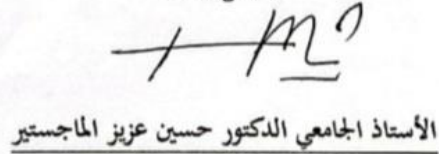 الأستاذ الجامعي الدكتور حسين عزيز الماجستير